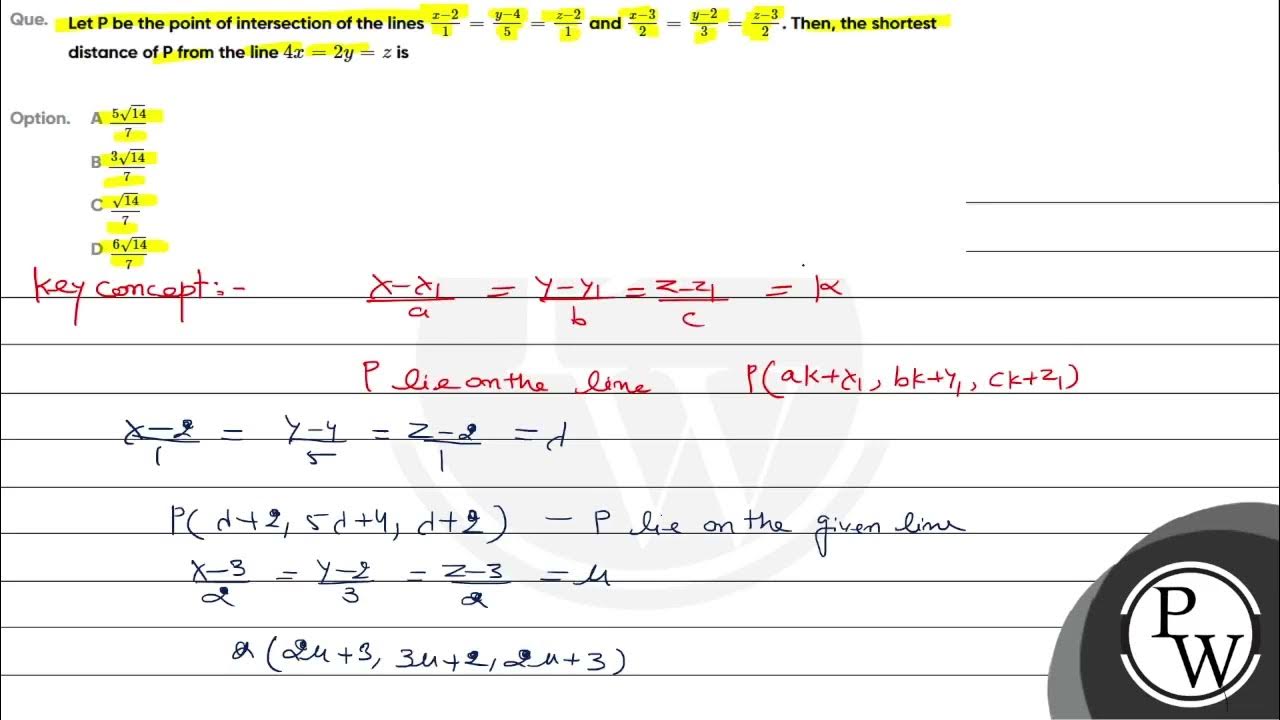 Que. Let P be the point of intersection of the lines \frac{x-2}{1} = \frac{y-4}{5} = \frac{z-2}{1} and \frac{x-3}{2} = \frac{y-2}{3} = \frac{z-3}{2}. Then, the shortest
distance of P from the line 4x = 2y = z is
Option. A \frac{5\sqrt{14}}{7}
B \frac{3\sqrt{14}}{7}
C \frac{\sqrt{14}}{7}
D \frac{6\sqrt{14}}{7}
Key concept:- \frac{x-x_1}{a} = \frac{y-y_1}{b} = \frac{z-z_1}{c} = k
P lie on the line P(ak+x_1, bk+y_1, ck+z_1)
\frac{x-2}{1} = \frac{y-4}{5} = \frac{z-2}{1} = λ
P(λ+2, 5λ+4, λ+2) - P lie on the given line
\frac{x-3}{2} = \frac{y-2}{3} = \frac{z-3}{2} = μ
(2μ+3, 3μ+2, 2μ+3)
PW